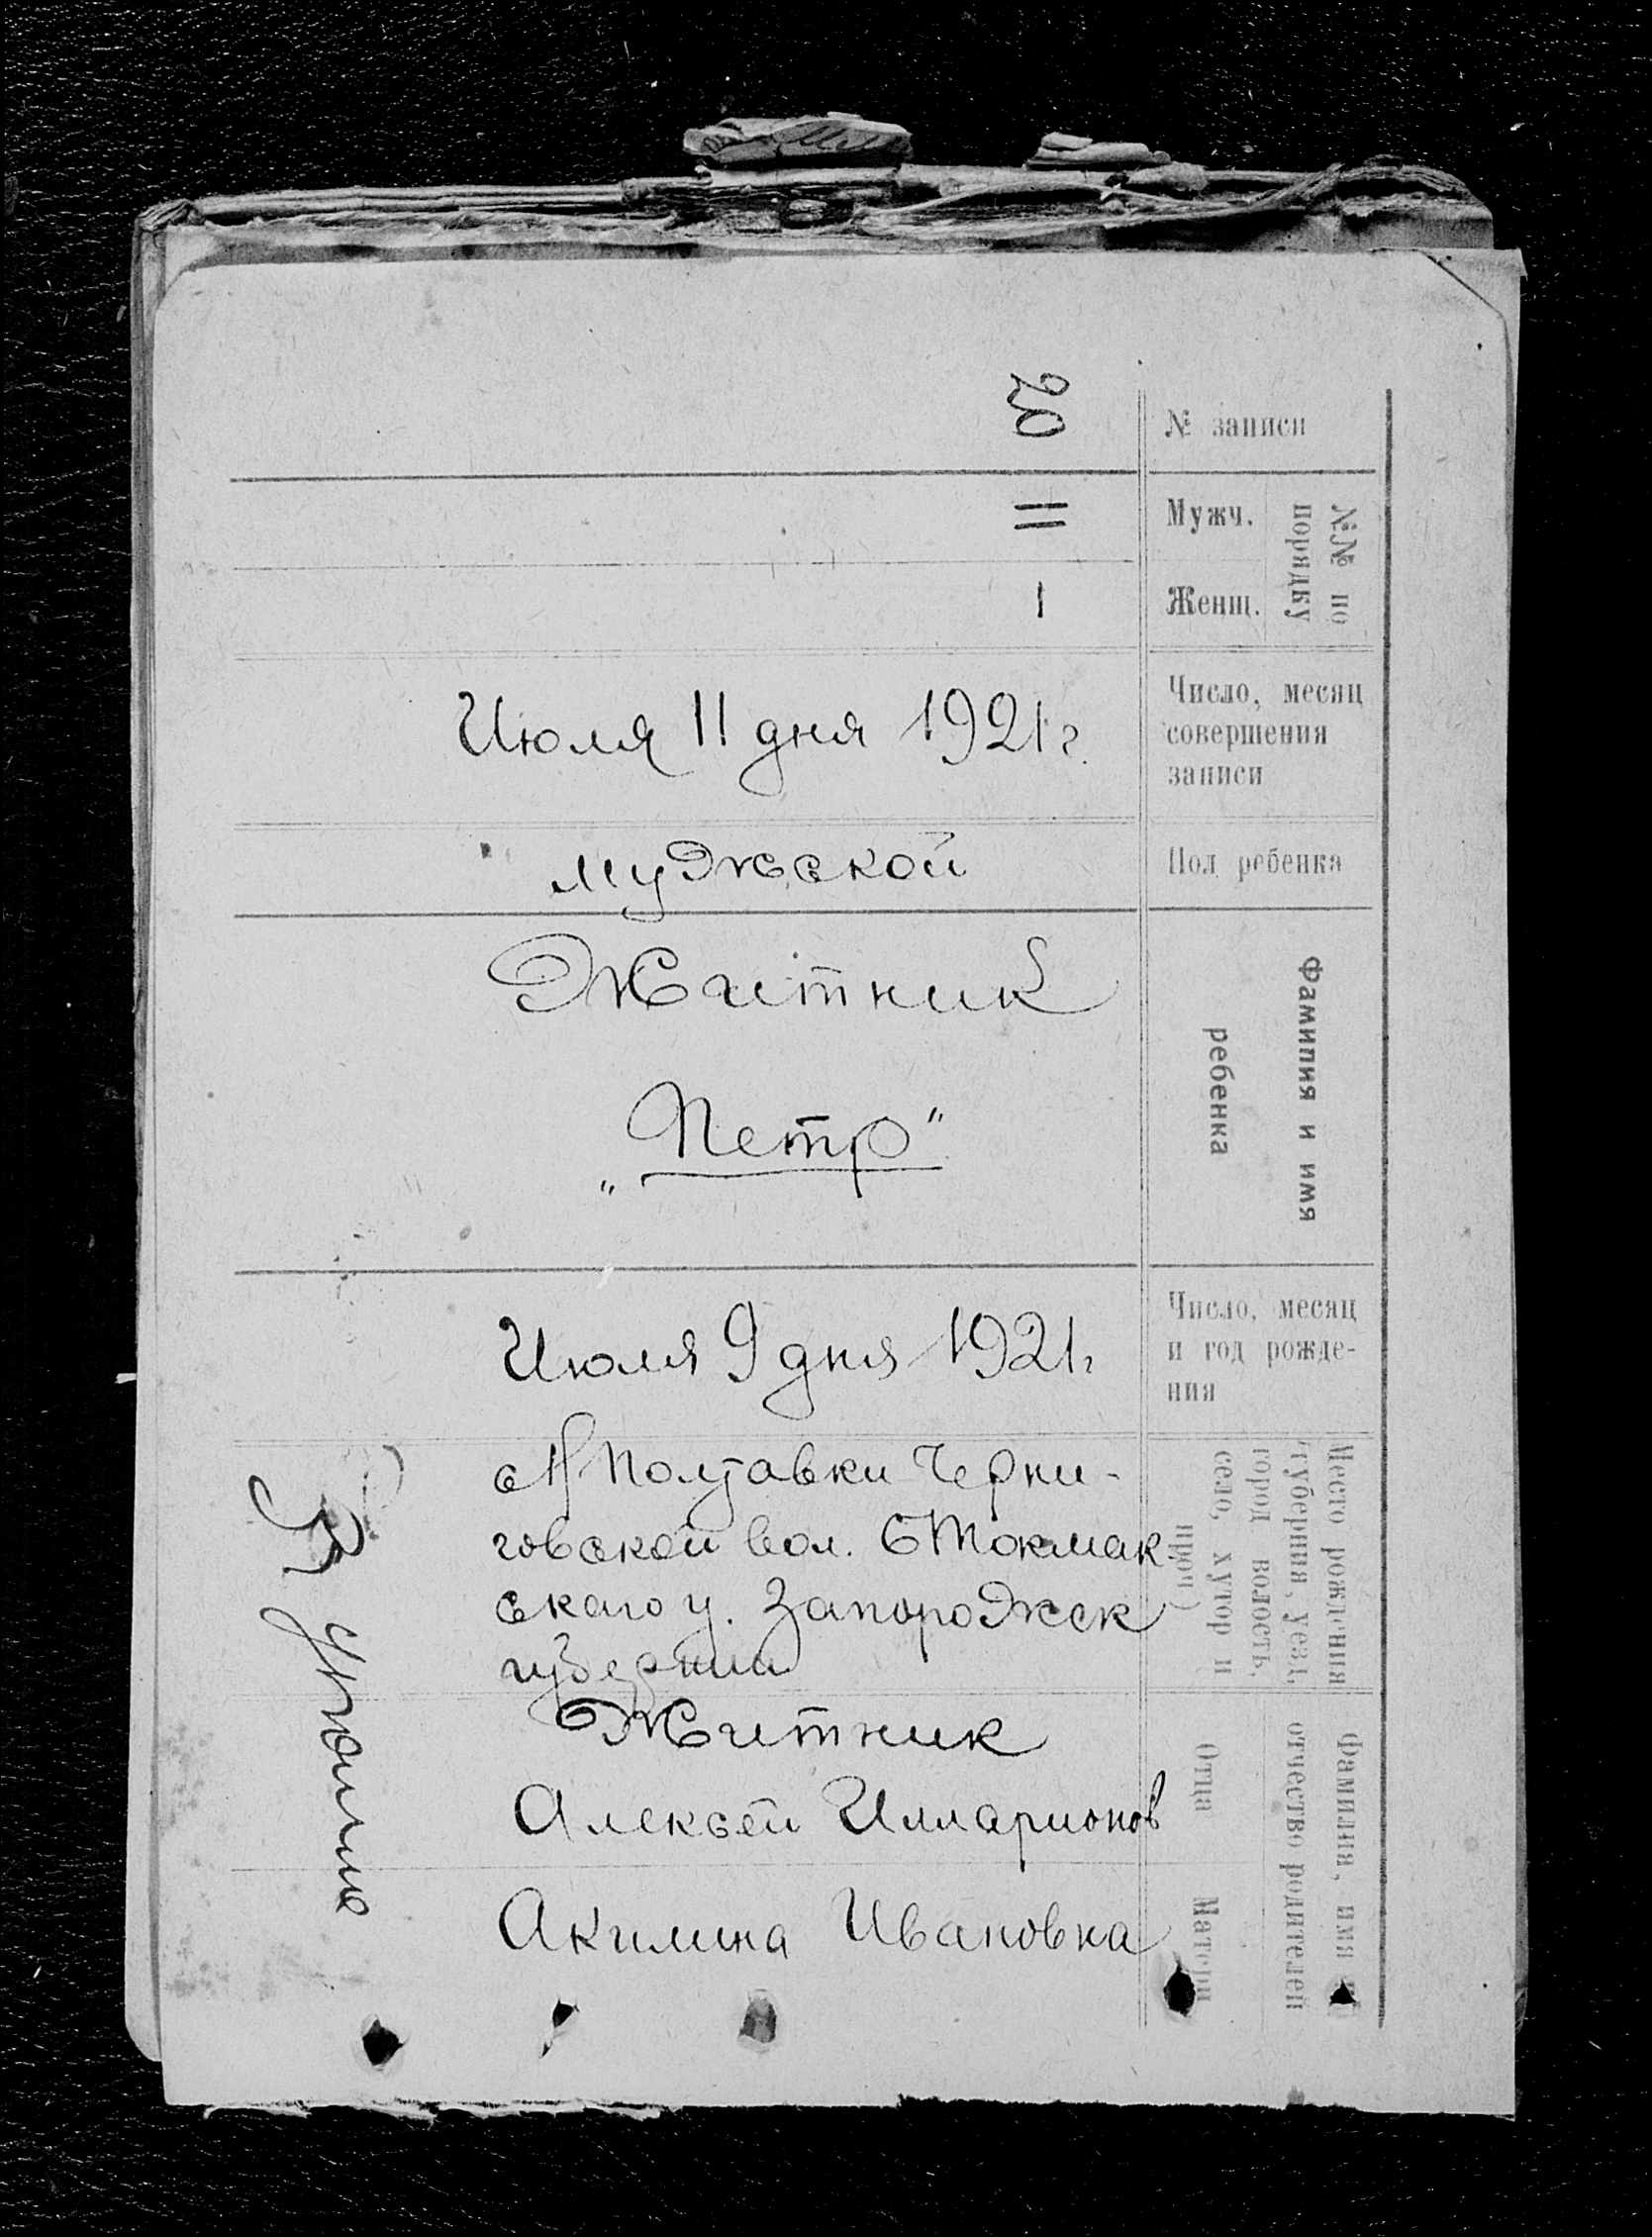 № записи
20
№№ по
порядку
Мужч.
11
Женщ.
1
Число, месяц
совершения
записи
Июля 11 дня 1921 г.
Пол ребенка
мужской
Фамилия и имя
ребенка
Житник
„Петр“
Число, месяц
и год рожде-
ния
Июля 9 дня 1921 г
Место рождения
(губерния, уезд,
город волость,
село, хутор и
проч.)
с Н Полтавки Черни-
говской вол. Б Токмак
ского у. Запорожск
губернии
Фамилия, имя и
отчество родителей
Отца
Житник
Алексей Илларионов
Матери
Акилина Ивановна